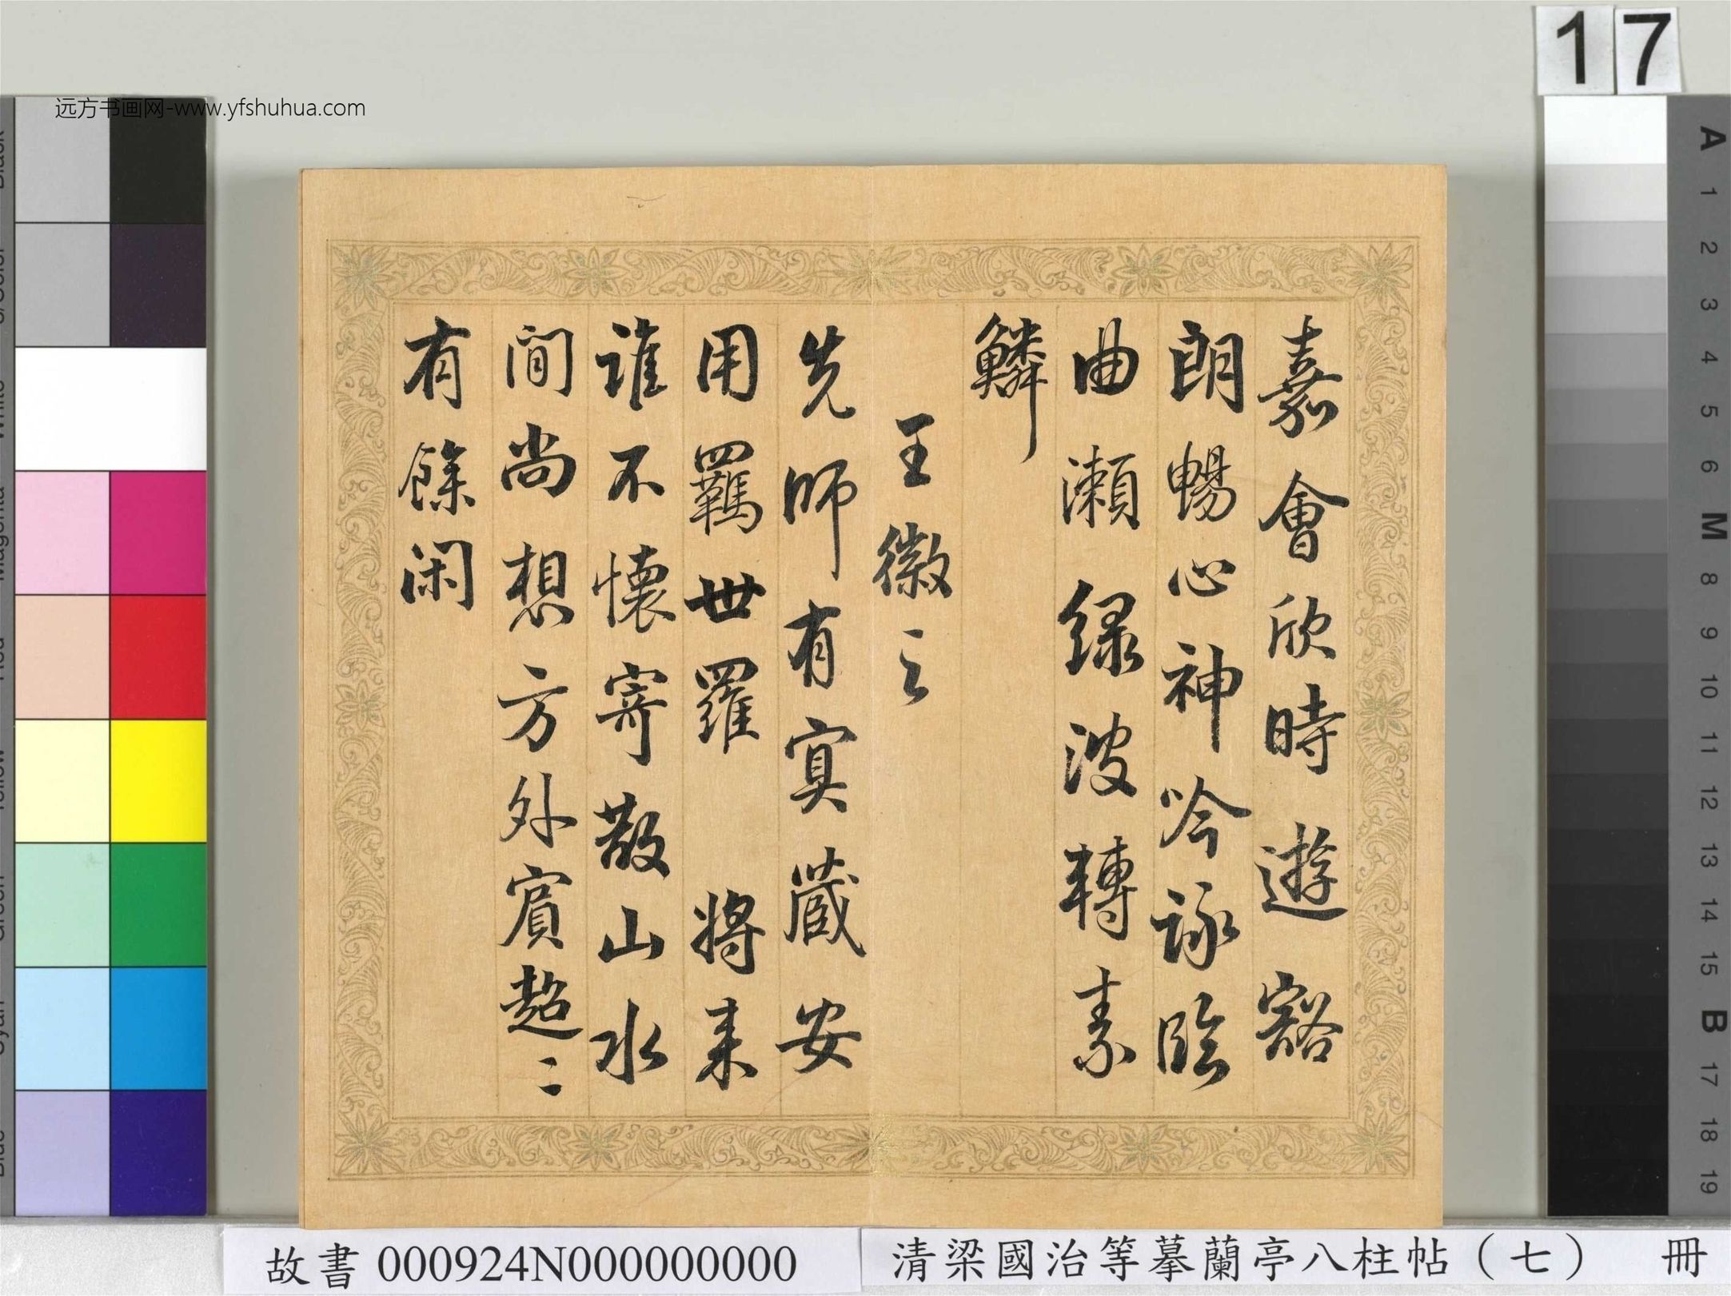 17
远方书画网-www.yfshuhua.com
嘉會欣時遊豁
朗暢心神吟詠臨
曲瀨綠波轉素
鱗
王徽之
先師有冥藏安
用羈世羅將來
誰不懷寄散山水
間尚想方外賓超〻
有餘闲
A
1
2
3
4
5
6
M
8
9
10
11
12
13
14
15
B
17
18
19
故書 000924N000000000
清梁國治等摹蘭亭八柱帖（七） 冊